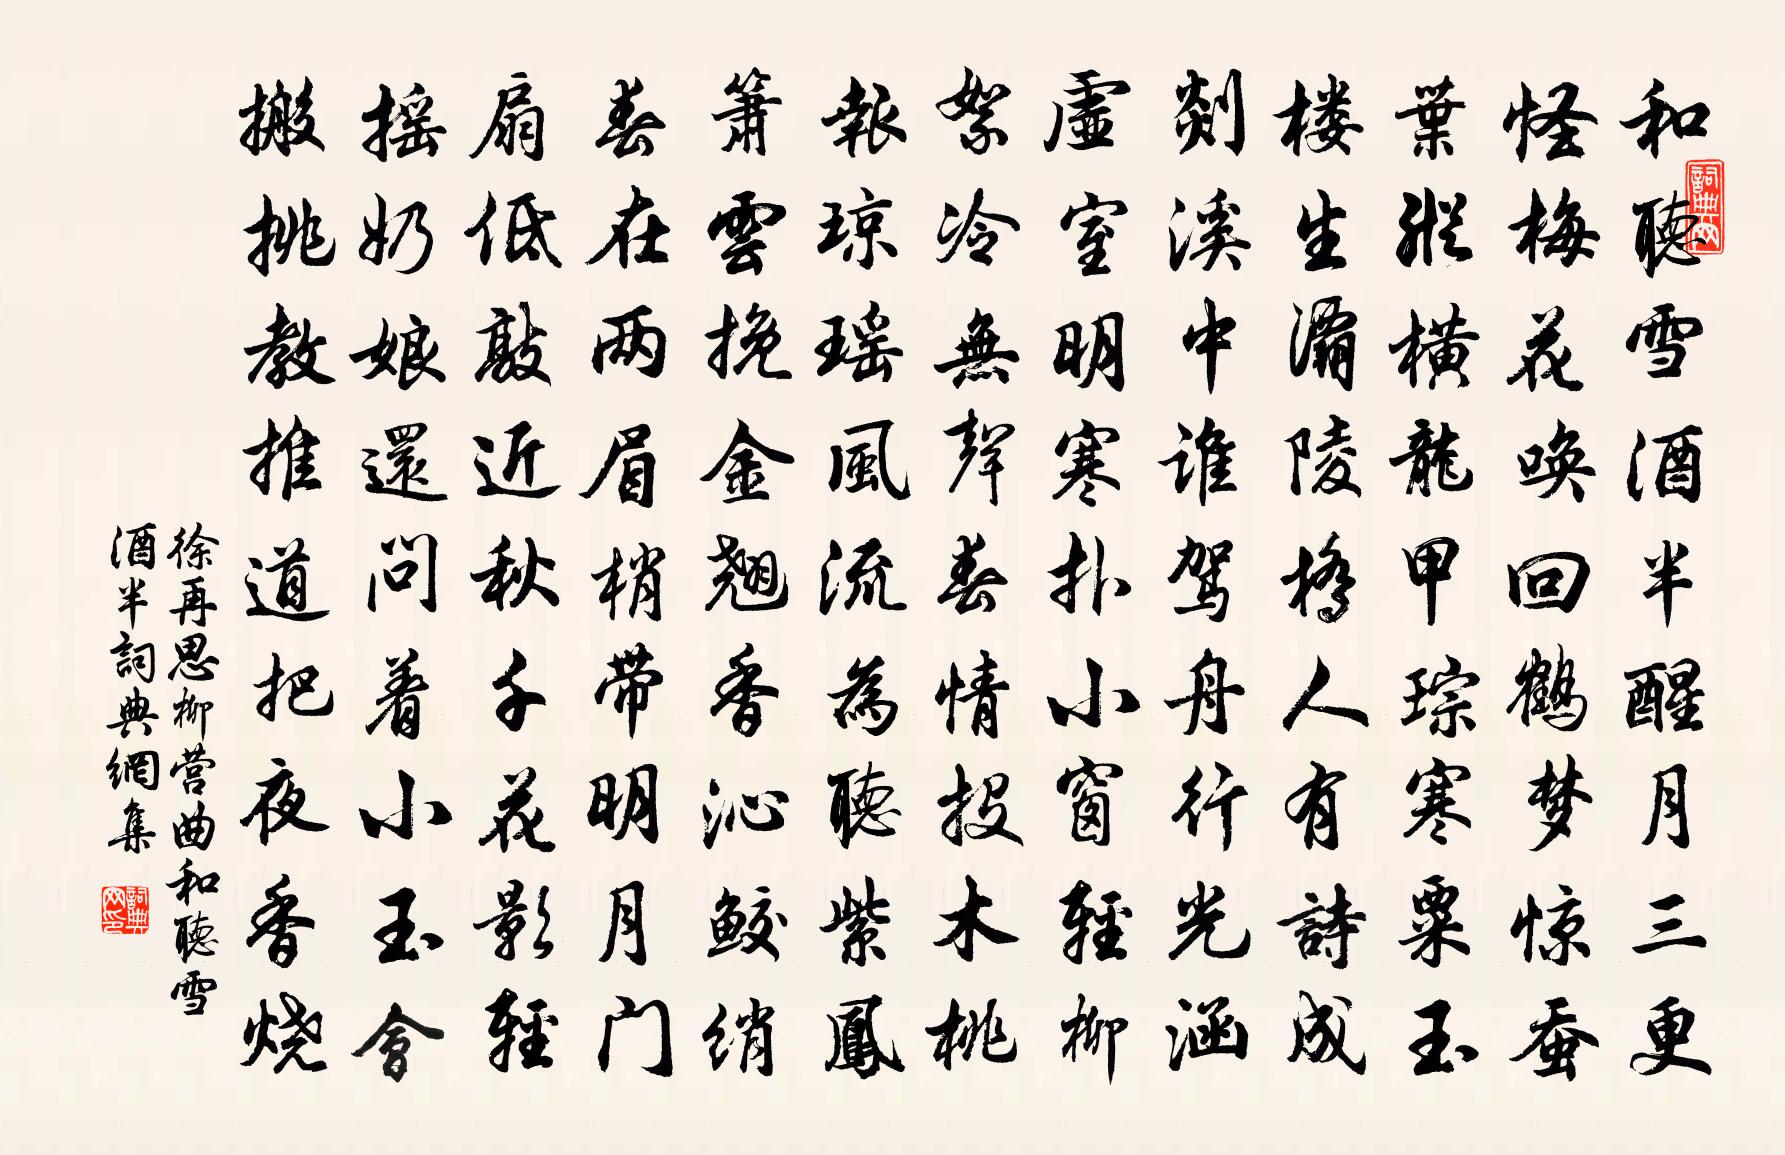 和聽雪酒半醒月三更
怪梅花唤回鶴梦惊蚕
葉縱横龍甲琮寒粟玉
楼生灞陵橋人有詩成
剡溪中谁駕舟行光涵
虚室明寒扑小窗輕柳
絮冷無聲春情投木桃
報琼瑶風流為聽紫鳳
簫雲挽金翘香沁鮫绡
春在两眉梢带明月门
扇低敲近秋千花影輕
摇奶娘還問着小玉會
搬挑教推道把夜香烧
徐再思柳营曲和聽雪
酒半詞典網集
詞典网
詞典网印